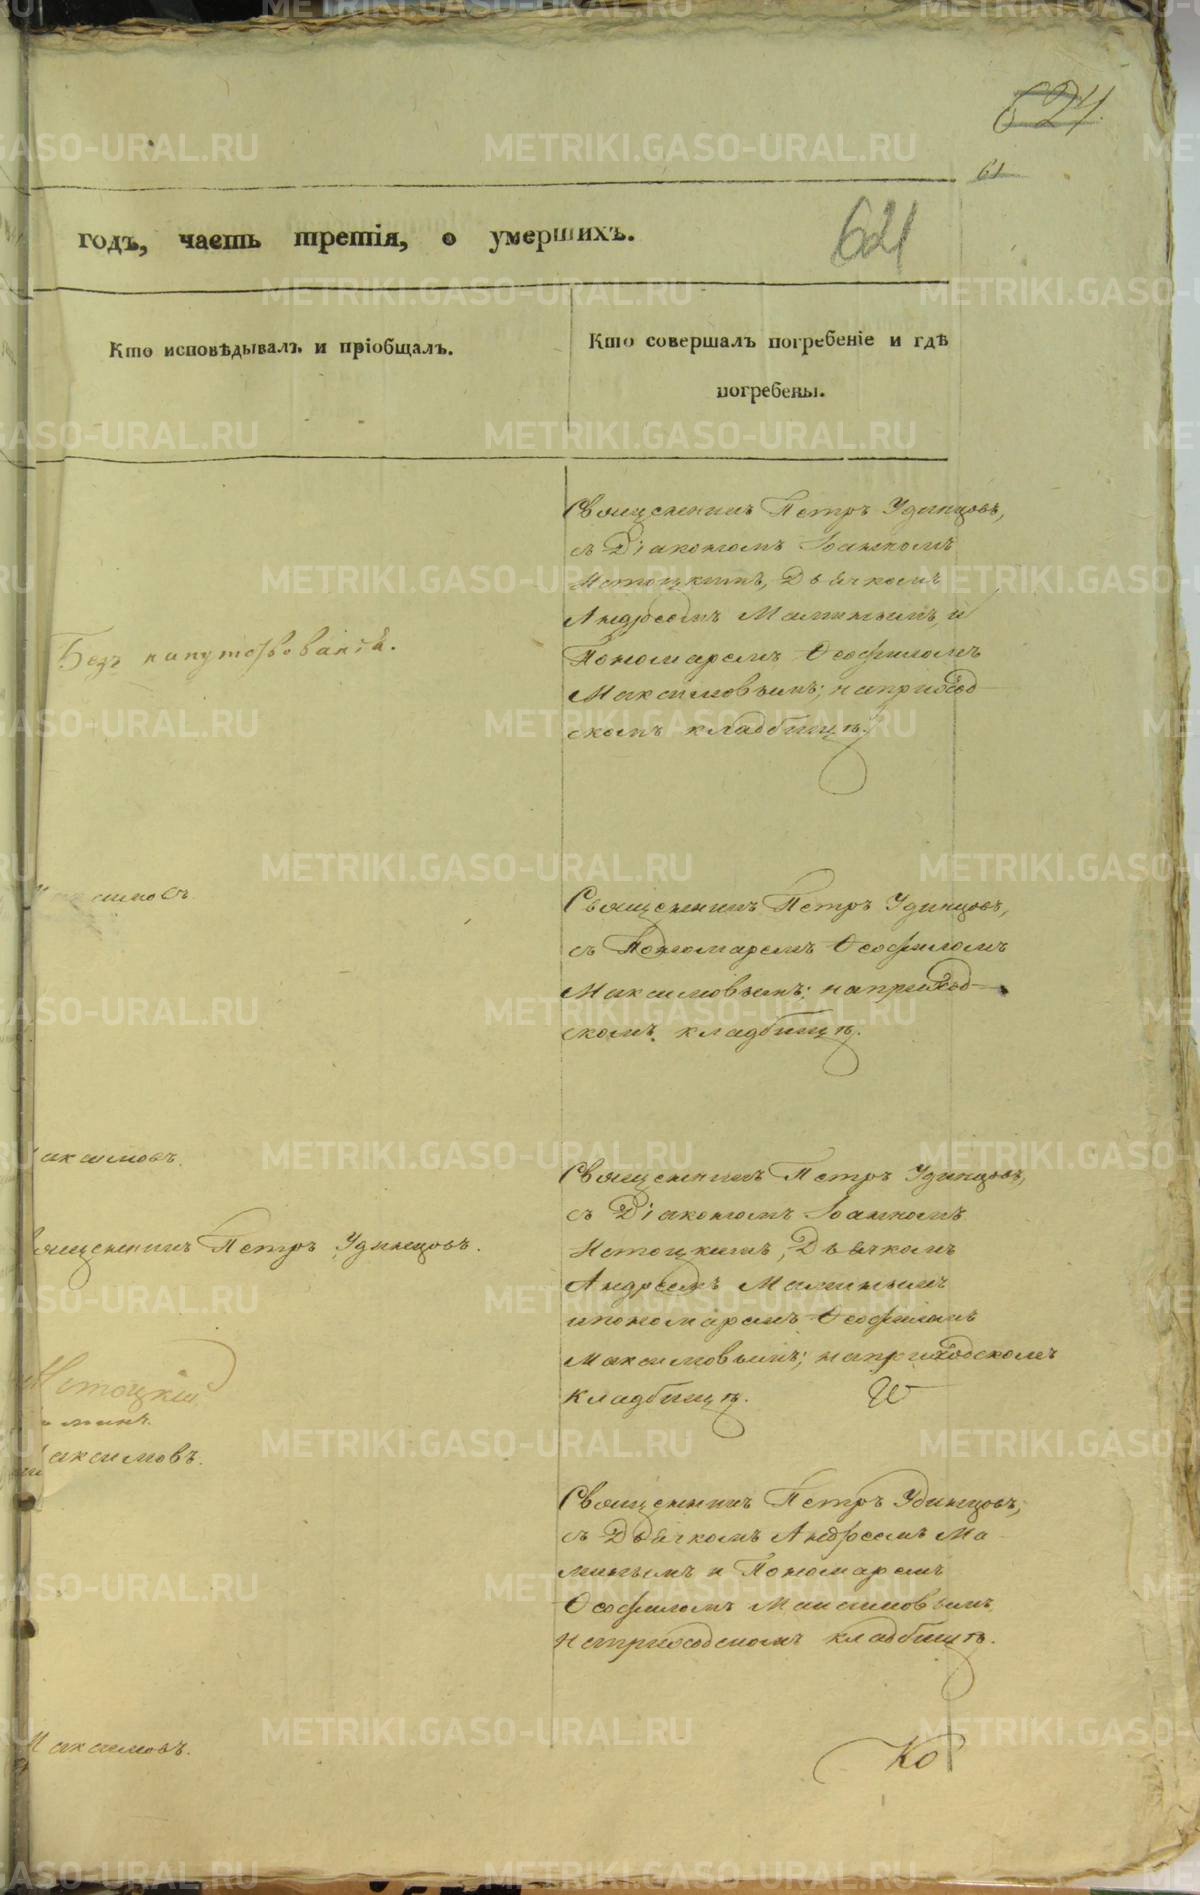 621.
61
621
годъ, часть третія, о умершихъ.
Кто исповѣдывалъ и пріобщалъ.
Кто совершалъ погребеніе и гдѣ
погребены.
Священникъ Петръ Удинцовъ,
съ Діакономъ Іоанномъ
Истоцкимъ, Дьячкомъ
Андреемъ Маминымъ, и
Пономаремъ Ѳеофиломъ
Максимовымъ; на приход
скомъ кладбищѣ.
Безъ напутствованія.
Священникъ Петръ Удинцовъ,
съ Пономаремъ Ѳеофиломъ
Максимовымъ; на приход
скомъ кладбищѣ.
аксимовъ
аксимовъ.
Священникъ Петръ Удинцовъ,
съ Діакономъ Іоанномъ
Истоцкимъ, Дьячкомъ
Андреемъ Маминымъ
и пономаремъ Ѳеофиломъ
Максимовымъ; на приходскомъ
кладбищѣ.
вященникъ Петръ Удинцовъ.
Истоцкій
минъ.
аксимовъ.
Священникъ Петръ Удинцовъ,
съ Дьячкомъ Андреемъ Ма
минымъ и Пономаремъ
Ѳеофиломъ Максимовымъ
на приходскомъ кладбищѣ.
Максимовъ.
Ко
METRIKI.GASO-URAL.RU